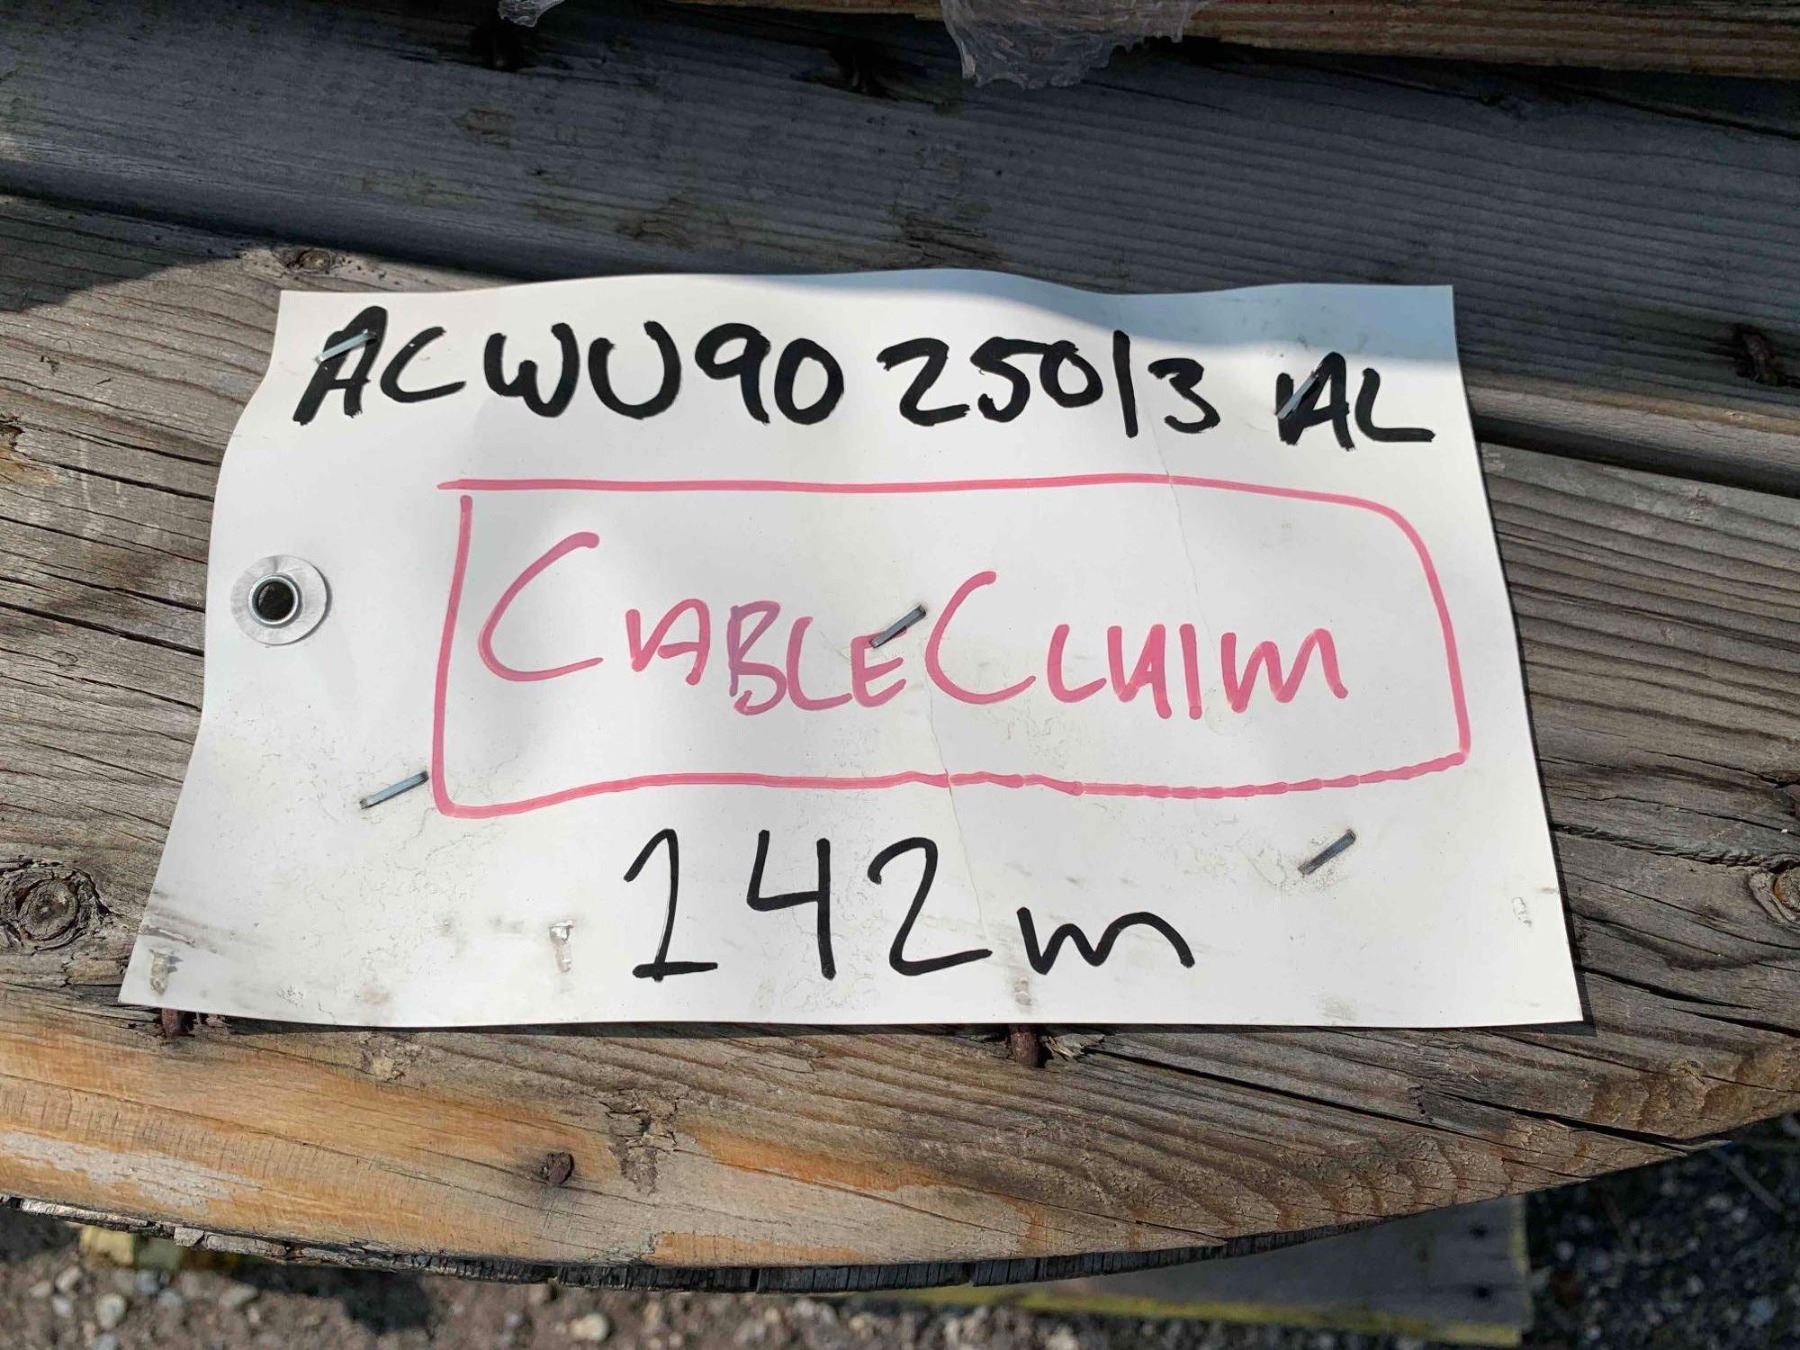 ACWU90 250/3 AL
CABLECLAIM
142m